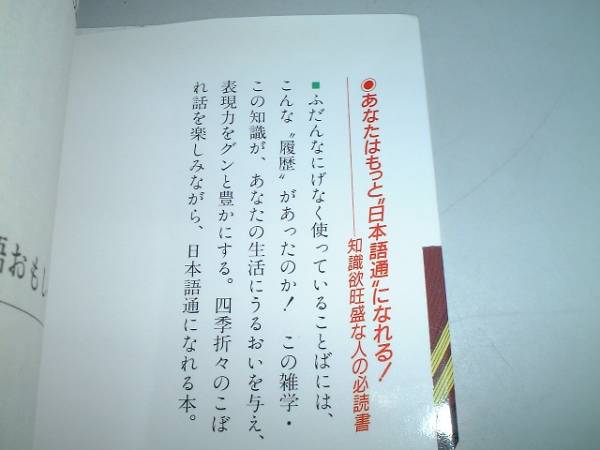 ◉あなたはもっと"日本語通"になれる!
知識欲旺盛な人の必読書
■ふだんなにげなく使っていることばには、
こんな"履歴"があったのか! この雑学・
この知識が、あなたの生活にうるおいを与え、
表現力をグンと豊かにする。四季折々のこぼ
れ話を楽しみながら、日本語通になれる本。
語おもし